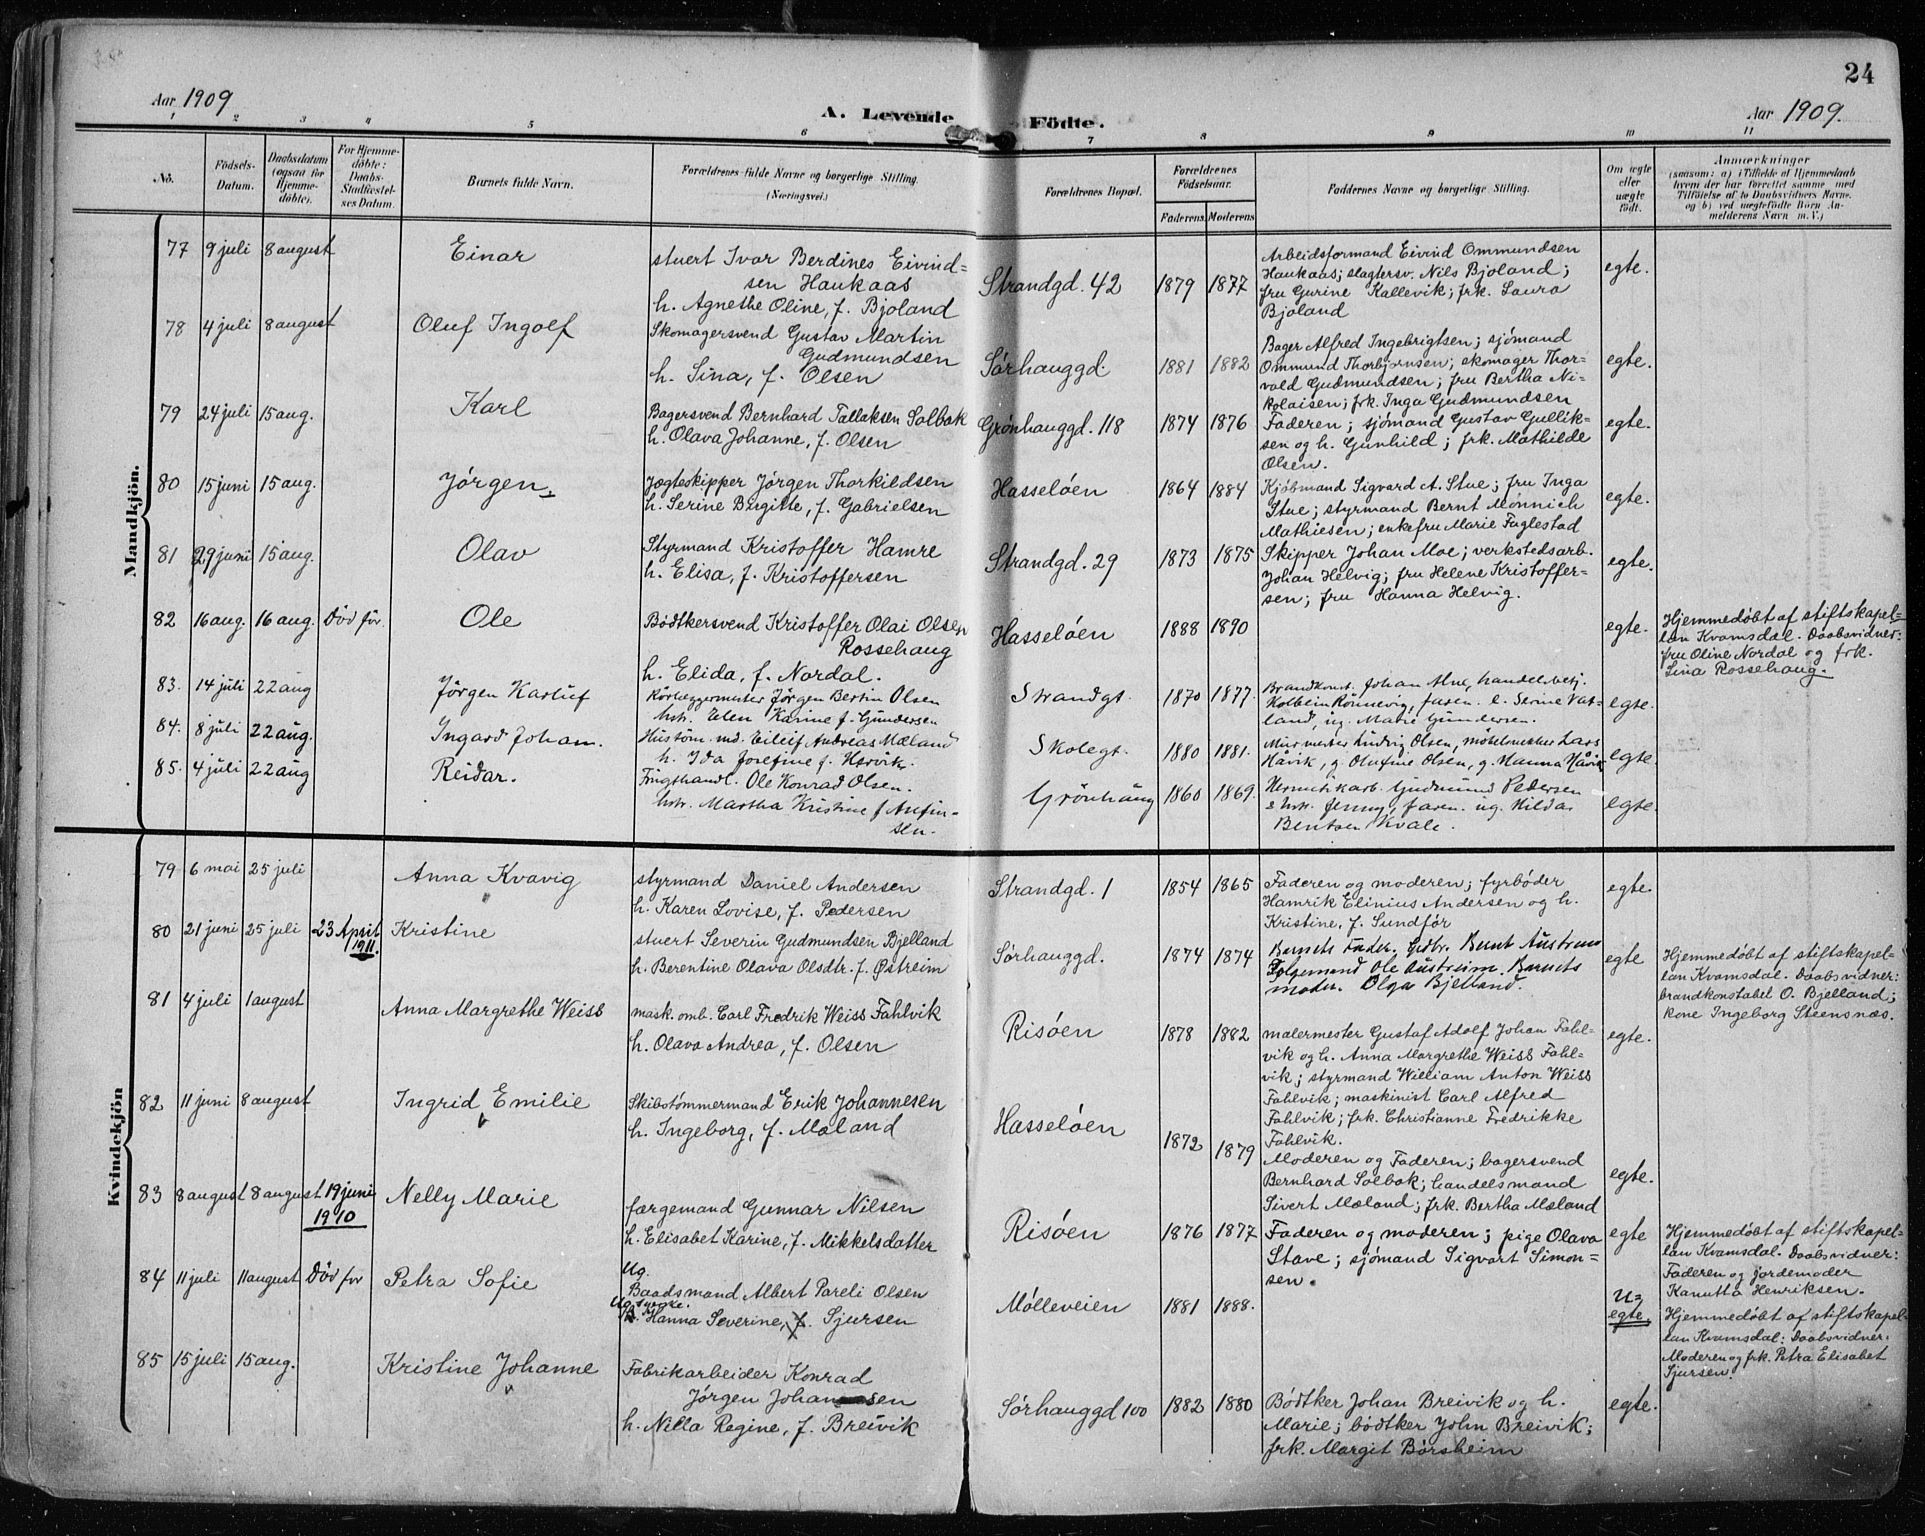 24
Aar 1909
A. Levende Födte.
Aar 1909.
1 2 3 4 5 6 7 8 9 10 11
No.
Födsels-Datum.
Daabsdatum (ogsaa for Hjemme-döbte).
For Hjemme-döbte: Daabs-Stadfæstel-ses Datum.
Barnets fulde Navn.
Forældrenes fulde Navne og borgerlige Stilling. (Næringsvei.)
Forældrenes Bopæl.
Forældrenes Födselsaar.
Faderens. Moderens
Faddernes Navne og borgerlige Stilling.
Om ægte eller uægte födt.
Anmærkninger
(saasom: a) i Tilfælde af Hjemmedaab hvem der har forrettet samme med Tilföielse af to Daabsvidners Navne. og b) ved uægtefödte Börn An-melderens Navn m. V.)
Mandkjön.
77 9 juli 8 august Einar
stuert Ivar Berdines Eivind=
sen Haukaas
h. Agnethe Oline, f. Bjoland
Strandgd. 42 1879 1877
Arbeidsformand Eivind Ommundsen
Haukaas; slagtersv. Nils Bjoland;
fru Gurine Kallevik; frk. Laura
Bjoland
egte.
78 4 juli 8 august Oluf Ingolf
Skomagersvend Gustav Martin
Gudmundsen
h. Sina, f. Olsen
Sørhauggd. 1881 1882
Bager Alfred Ingebrigtsen; sjømand
Ommund Thorbjørnsen; skomager Thor=
vald Gudmundsen; fru Bertha Ni=
kolaisen; frk. Inga Gudmundsen
egte.
79 24 juli 15 aug. Karl
Bagersvend Bernhard Tallaksen Solbak
h. Olava Johanne, f. Olsen
Grønhauggd. 118 1874 1876
Faderen; sjömand Gustav Gullik=
sen og h. Gunhild; frk. Mathilde
Olsen.
egte.
80 15 juni 15 aug. Jørgen
Jægteskipper Jørgen Thorkildsen
h. Serine Birgitte, f. Gabrielsen
Hasseløen 1864 1884
Kjøbmand Sigvard A. Stue; fru Inga
Stue; styrmand Bernt Mønnich
Mathiesen; enkefru Marie Faglestad
egte.
81 29 juni 15 aug. Olav
Styrmand Kristoffer Hamre
h. Elisa, f. Kristoffersen
Strandgd. 29 1873 1875
Skipper Johan Moe; verkstedsarb.
Johan Helvig; fru Helene Kristoffer=
sen; fru Hanna Helvig.
egte.
82 16 aug. 16 aug. Död för. Ole
Bødtkersvend Kristoffer Olai Olsen
Rossehaug
h. Elida, f. Nordal.
Hasseløen 1888 1890
egte.
Hjemmedøbt af stiftskapel=
lan Kvamsdal. Daabsvidner:
fru Oline Nordal og frk.
Sina Rossehaug.
83. 14 juli 22 aug Jörgen Karluf
Rörlæggermester Jörgen Bertin Olsen
hstr. Elen Karine f. Gundersen
Strandgt. 1870 1877.
Brandkonst. Johan Aue, handelsbetj.
Kolbein Rönnevig, faren. e. Serine Vat=
land, ug. Marie Gundersen.
egte.
84. 8 juli 22 aug. Ingard Johan.
Hustöm. md. Eileif Andreas Mæland
h. Ida Josefine f. Hervik.
Skolegt. 1880 1881.
Murmester Ludvig Olsen, möbelsnekker Lars
Håvik, g. Olufine Olsen, g. Hanna Håvik
egte.
85. 4 juli 22 aug Reidar.
Frugthandl. Ole Konrad Olsen.
hstr. Martha Kristine f Anfin=
sen.
Grönhaug 1860 1869.
Hermetikarb. Gudmund Pedersen
& hstr. Jenny, faren. ug. Hilda
Bentsen Kvale.
egte.
Kvindekjön
79 6 mai 25 juli Anna Kvavig
styrmand Daniel Andersen
h. Karen Lovise, f. Pedersen
Strandgd. 1 1854 1865
Faderen og moderen; fyrbøder
Hamrik Elinius Andersen og h.
Kristine, f. Sundfør
egte.
80 21 juni 25 juli 23 April 1911. Kristine
stuert Severin Gudmundsen Bjelland
h. Berentine Olava Olsdtr. f. Østreim
Sørhauggd. 1874 1874
Barnets Fader. Gdbr. Bernt Austreim
Ole Austreim. Barnets
moder. Olga Bjelland.
egte
Hjemmedøbt af stiftskapel=
lan Kvamsdal. Daabsvidner:
brandkonstabel O. Bjelland;
kone Ingeborg Steensnæs.
81 4 juli 1 august Anna Margrethe Weiss
mask. omb. Carl Fredrik Weiss Fahlvik
h. Olava Andrea, f. Olsen
Risøen 1878 1882
malermester Gustaf Adolf Johan Fahl=
vik og h. Anna Margrethe Weiss Fahl=
vik; styrmand William Anton Weiss
Fahlvik; maskinist Carl Alfred
Fahlvik; frk. Christianne Fredrikke
Fahlvik.
egte.
82 11 juni 8 august Ingrid Emilie
Skibstømmermand Erik Johannesen
h. Ingeborg, f. Mæland
Hasseløen 1872 1879
Moderen og Faderen; bagersvend
Bernhard Solbak; handelsmand
Sivert Mæland; frk. Bertha Mæland
egte.
83 8 august 8 august 19 juni 1910 Nelly Marie
færgemand Gunnar Nilsen
h. Elisabet Karine, f. Mikkelsdatter
Risøen 1876 1877
Faderen og moderen; pige Olava
Stave; sjömand Sigvart Simon=
sen.
egte
Hjemmedøbt af stiftskapel=
lan Kvamsdal. Daabsvidner:
Faderen og jordemoder
Kanutta Henriksen.
84 11 juli 11 august Död för Petra Sofie
Ug.
Baadsmand Albert Pareli Olsen
Ug. syerske.
h. Hanna Severine, f. Sjursen
Mølleveien 1881 1888.
U=
egte.
Hjemmedøbt af stiftskapel=
lan Kvamsdal: Daabsvidner:
Moderen og frk. Petra Elisabet
Sjursen.
85 15 juli 15 aug. Kristine Johanne
Fabrikarbeider Konrad
Jørgen Johansen
h. Nilla Regine, f. Breivik
Sørhauggd 100 1882 1880
Bødtker Johan Breivik og h.
Marie; bødtker John Breivik;
frk. Margit Børsheim
egte.